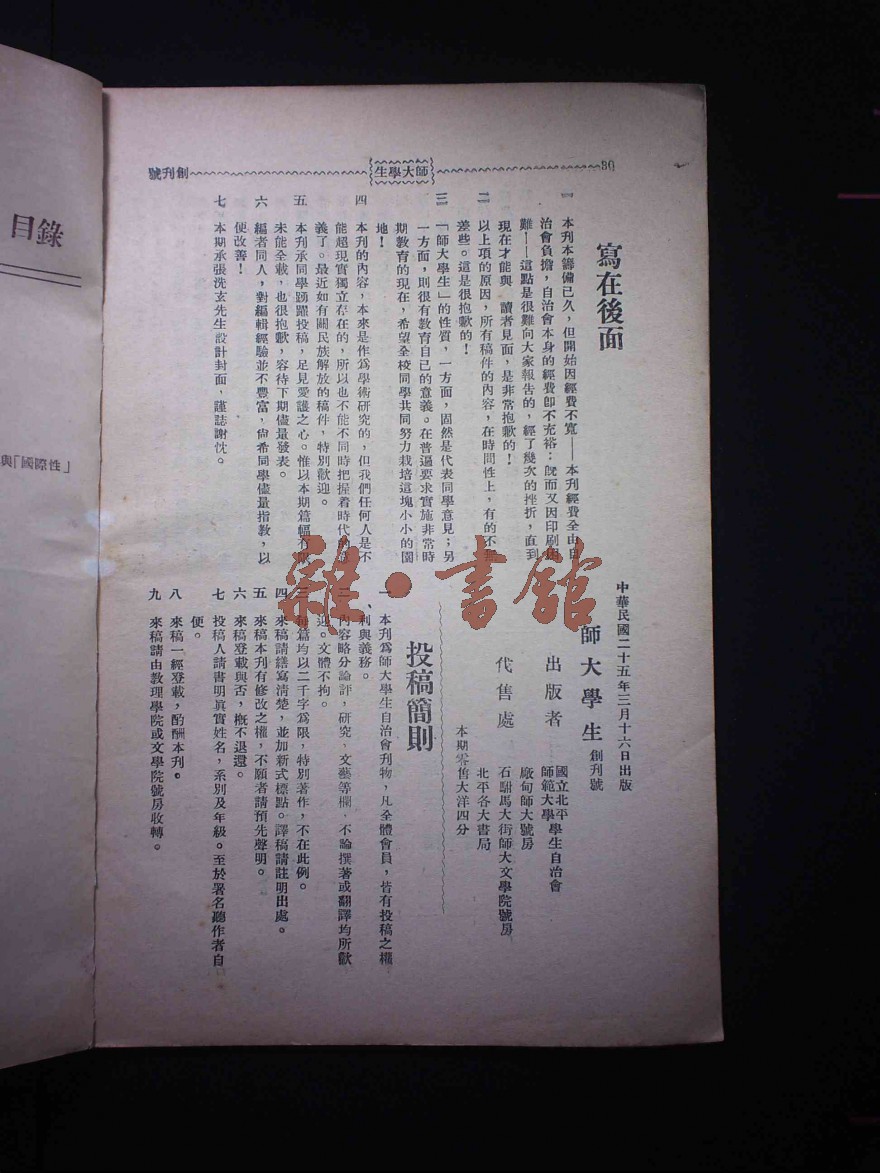 30
師大學生
創刊號
寫在後面
一　本刊本籌備已久，但開始因經費不寬——本刊經費全由自
治會負擔，自治會本身的經費卽不充裕；旣而又因印刷困
難——這點是很難向大家報告的，經了幾次的挫折，直到
現在才能與　讀者見面，是非常抱歉的！
二　以上項的原因，所有稿件的內容，在時間性上，有的不無
差些。這是很抱歉的！
三　「師大學生」的性質，一方面，固然是代表同學意見；另
一方面，則很有教育自己的意義。在普遍要求實施非常時
期教育的現在，希望全校同學共同努力栽培這塊小小的園
地！
四　本刊的內容，本來是作爲學術研究的，但我們任何人是不
能超現實獨立存在的，所以也不能不同時把握着時代的
義了。最近如有關民族解放的稿件，特別歡迎。
五　本刊承同學踴躍投稿，足見愛護之心。惟以本期篇幅有限
未能全載，也很抱歉，容待下期儘量發表。
六　編者同人，對編輯經驗並不豐富，尙希同學儘量指教，以
便改善！
七　本期承張洗玄先生設計封面，謹誌謝忱。
中華民國二十五年三月十六日出版
師大學生 創刊號
出版者 國立北平師範大學學生自治會
代售處 廠甸師大號房
石駙馬大街師大文學院號房
北平各大書局
本期零售大洋四分
投稿簡則
一　本刊爲師大學生自治會刊物，凡全體會員，皆有投稿之權
利與義務。
二、內容略分論評，研究，文藝等欄，不論撰著或翻譯均所歡
迎。文體不拘。
三　每篇均以二千字爲限，特別著作，不在此例。
四　來稿請繕寫淸楚，並加新式標點。譯稿請註明出處。
五　來稿本刊有修改之權，不願者請預先聲明。
六　來稿登載與否，槪不退還。
七　投稿人請書明眞實姓名，系別及年級。至於署名聽作者自
便。
八　來稿一經登載，酌酬本刊。
九　來稿請由教理學院或文學院號房收轉。
目錄
與「國際性」
雜·書館